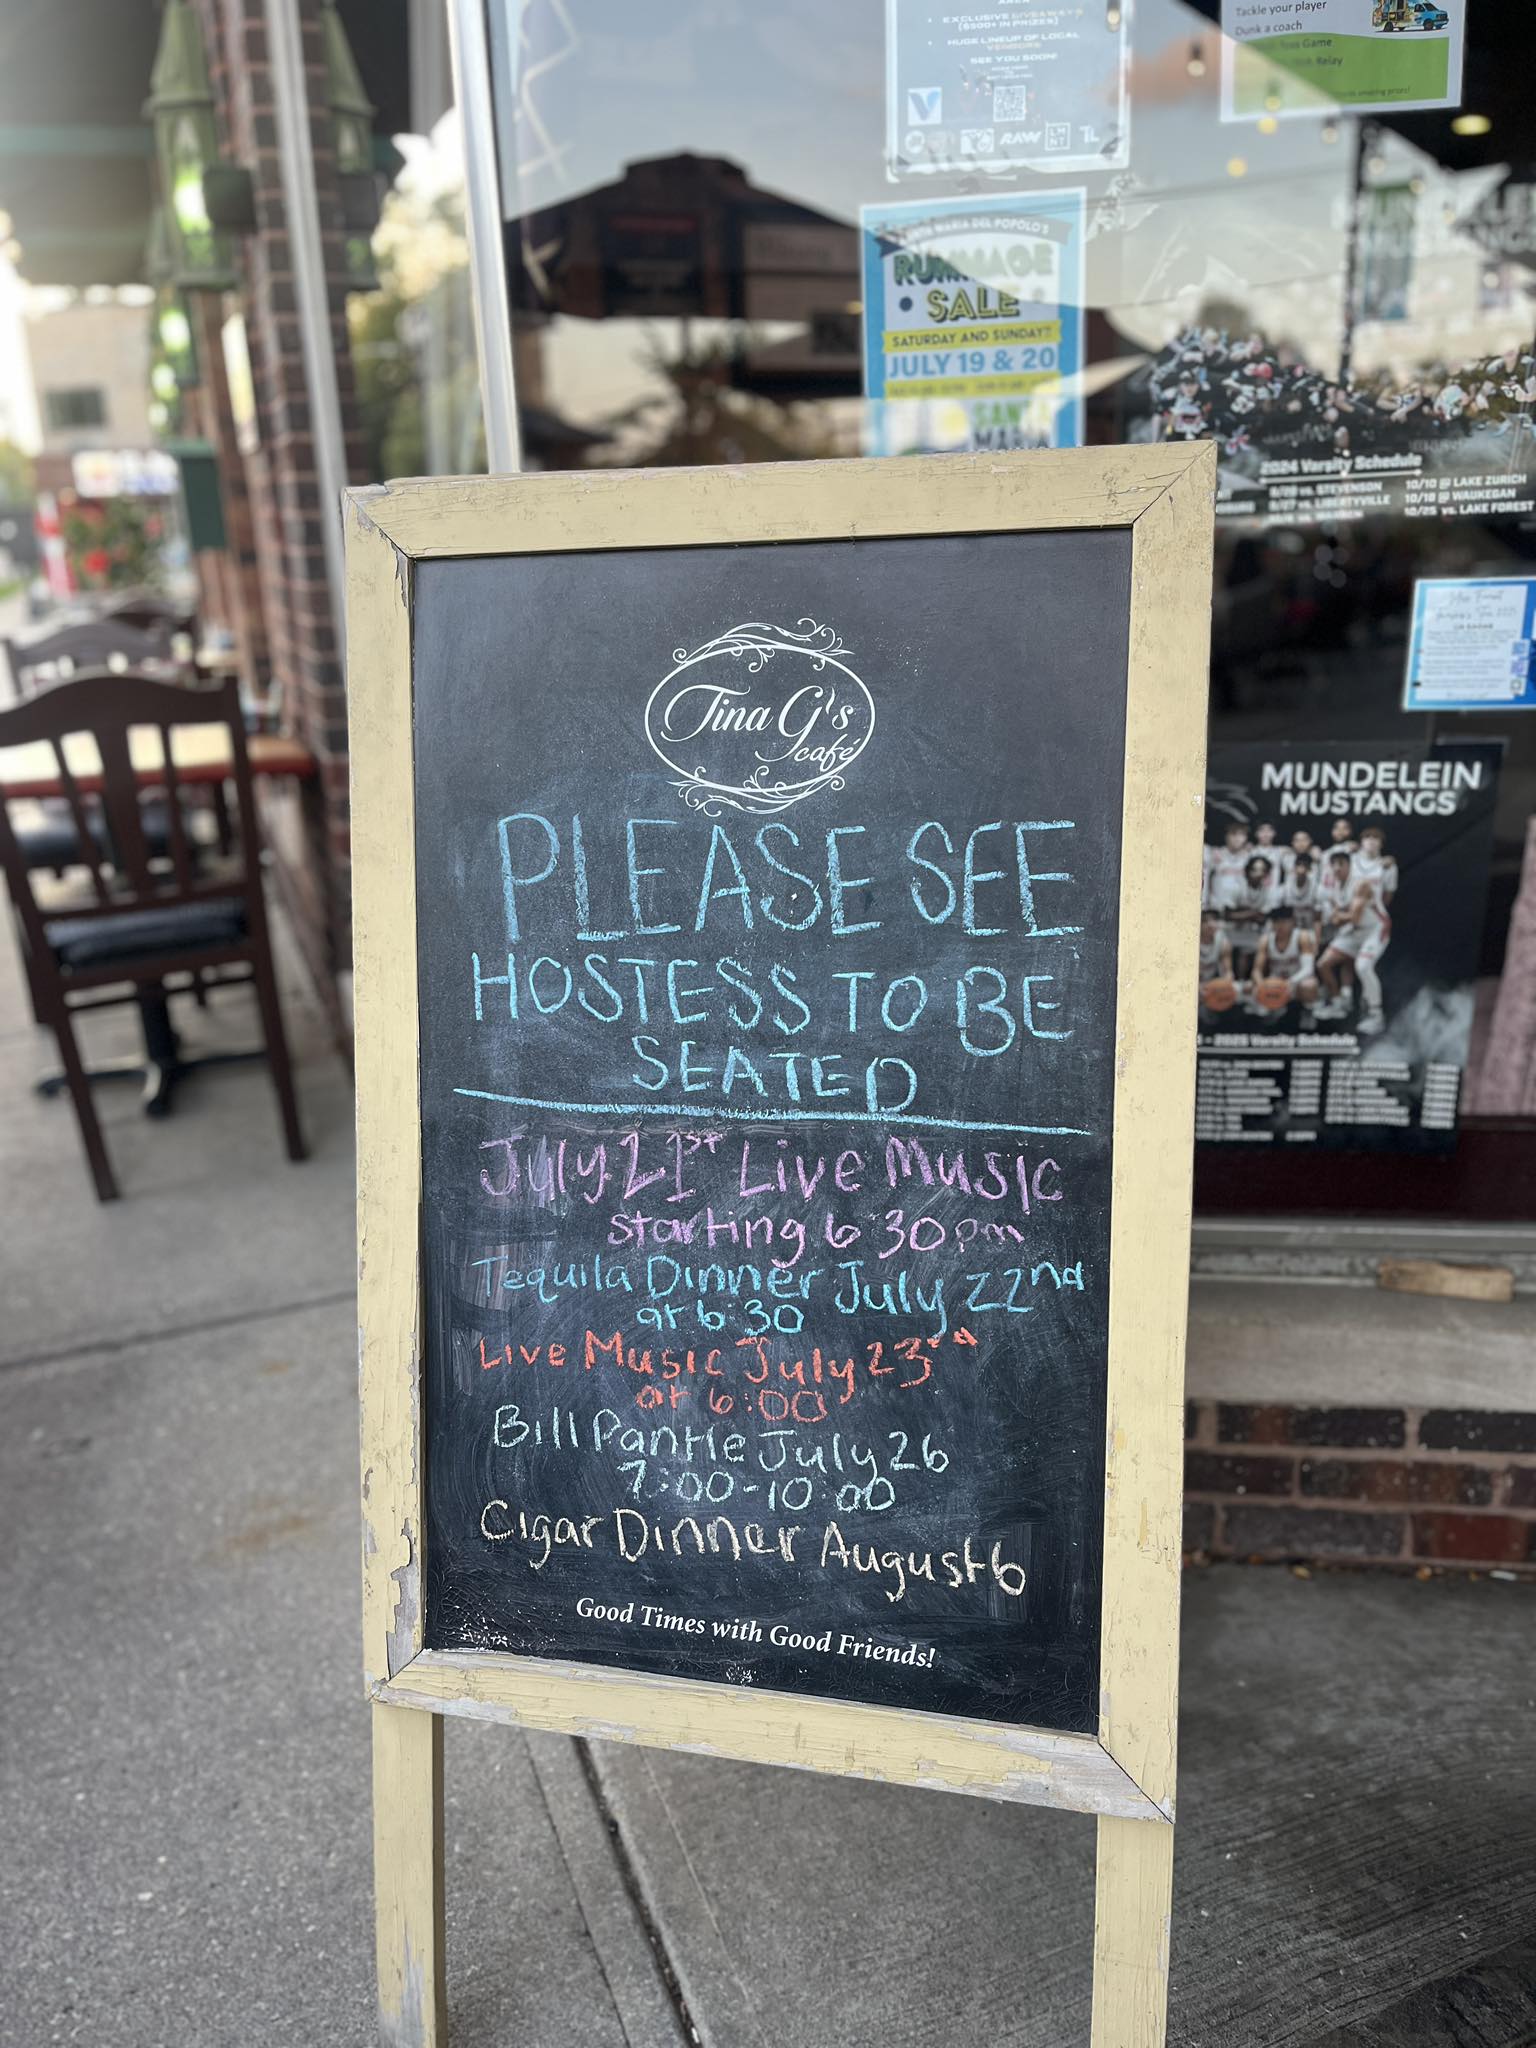 AREA
• EXCLUSIVE GIVEAWAYS
($500+ IN PRIZES)
• HUGE LINEUP OF LOCAL
VENDORS
SEE YOU SOON!
RAW
LM
NT
TL
Tackle your player
Dunk a coach
Game
Relay
MARIA DEL POPOLO'S
RUMMAGE
SALE
SATURDAY AND SUNDAY!
JULY 19 & 20
SANTA
MARIA
2024 Varsity Schedule
vs. STEVENSON
10/10 @ LAKE ZURICH
9/27 vs. LIBERTYVILLE
10/18 @ WAUKEGAN
10/25 vs. LAKE FOREST
MUNDELEIN
MUSTANGS
- 2025 Varsity Schedule
Tina G's
café
PLEASE SEE
HOSTESS TO BE
SEATED
July 21st Live Music
starting 6:30pm
Tequila Dinner July 22nd
at 6:30
Live Music July 23rd
at 6:00
Bill Pantle July 26
7:00-10:00
Cigar Dinner August 6
Good Times with Good Friends!